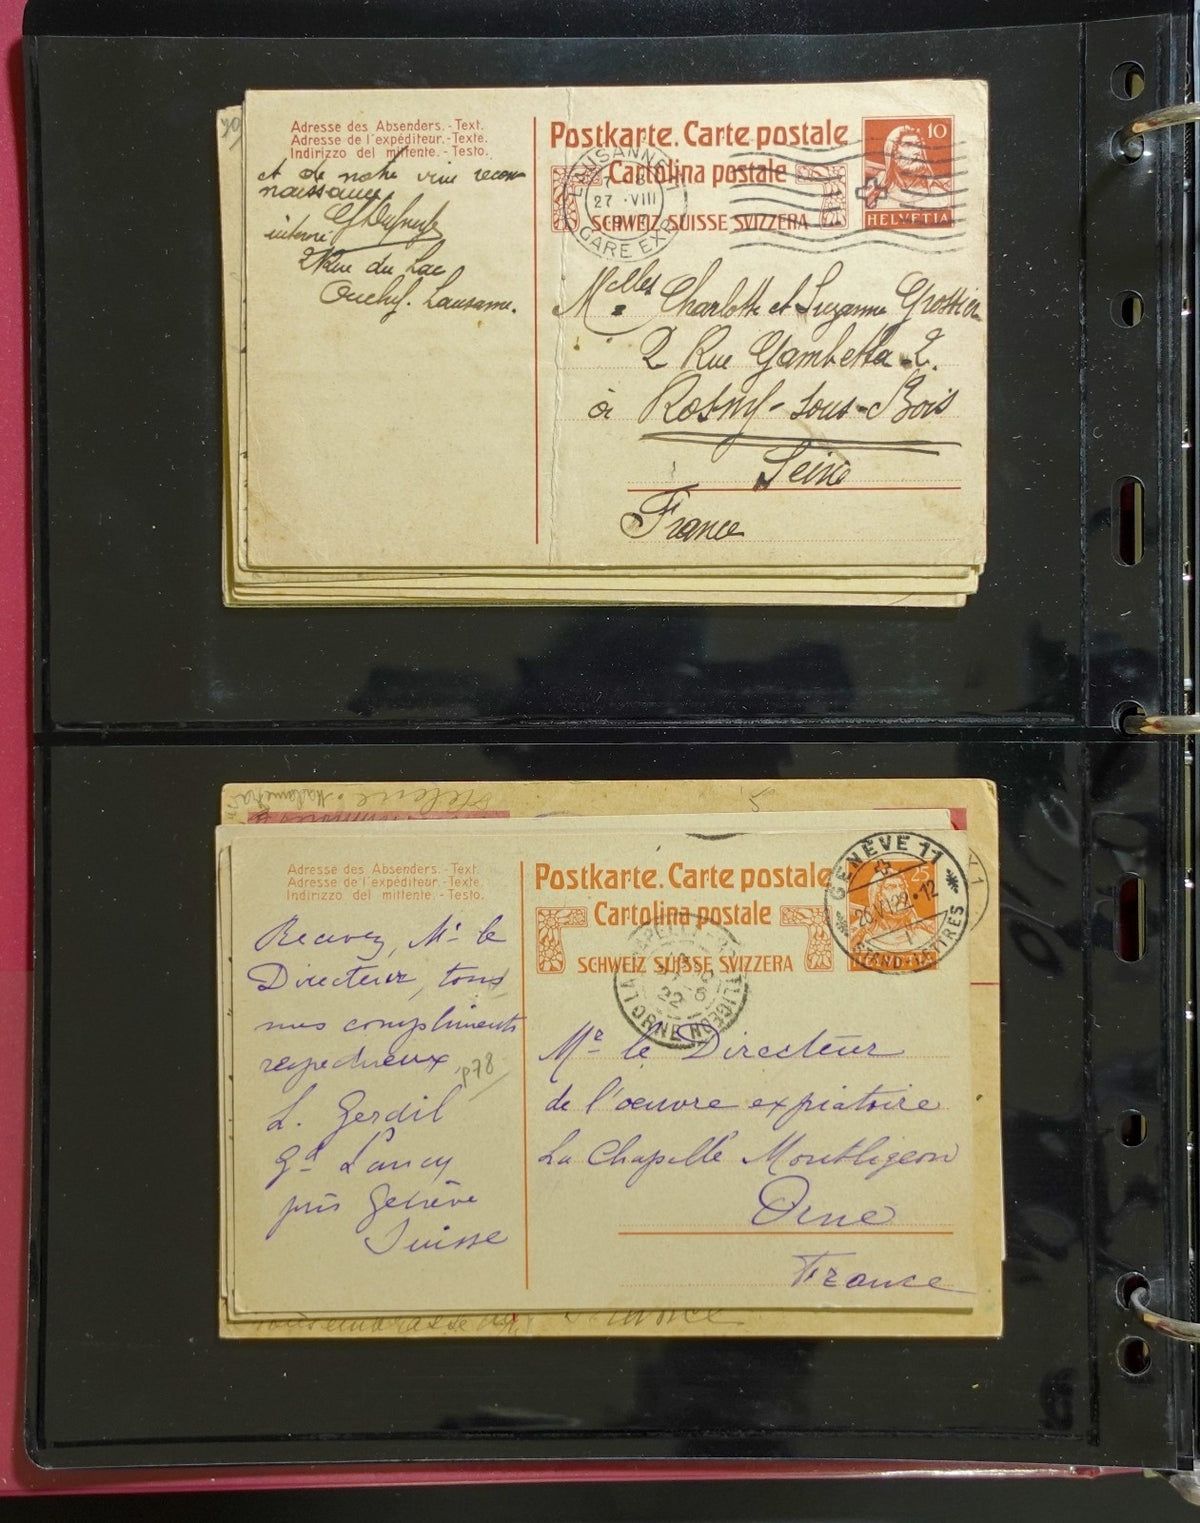 Adresse des Absenders. - Text.
Adresse de l'expéditeur. - Texte.
Indirizzo del mittente. - Testo.
et de notre vive recon-
naissance
interné
2 Rue du Lac
Ouchy. Lausanne.
Postkarte. Carte postale
Cartolina postale
SCHWEIZ SUISSE SVIZZERA
10
HELVETIA
LAUSANNE
27 · VIII
GARE EXP
Melles Charlotte et Suzanne Grossier
2 Rue Gambetta 2.
à Rosny-sous-Bois
Seine
France
Helene
Adresse des Absenders. - Text.
Adresse de l'expéditeur - Texte.
Indirizzo del mittente. - Testo.
Recevez, Mr le
Directeur, tous
mes compliments
respectueux
p78
L. Gerdil
Gd Lancy
près Genève
Suisse
Postkarte. Carte postale
Cartolina postale
SCHWEIZ SUISSE SVIZZERA
25
GENÈVE 11
STAND-LETTRES
ORNE
Mr le Directeur
de l'oeuvre expiatoire
La Chapelle Montligeon
Orne
France